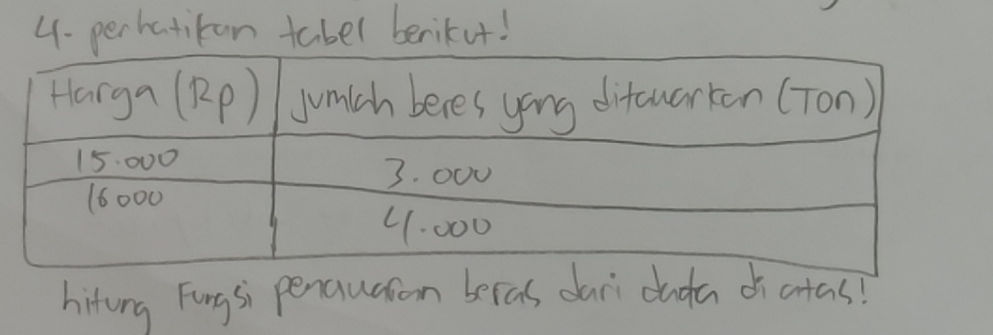 4. perhatikan tabel berikut!
Harga (Rp) Jumlah beres yang ditawarkan (Ton)
15.000 3.000
16000 4.000
hitung Fungsi penawaran beras dari data di atas!